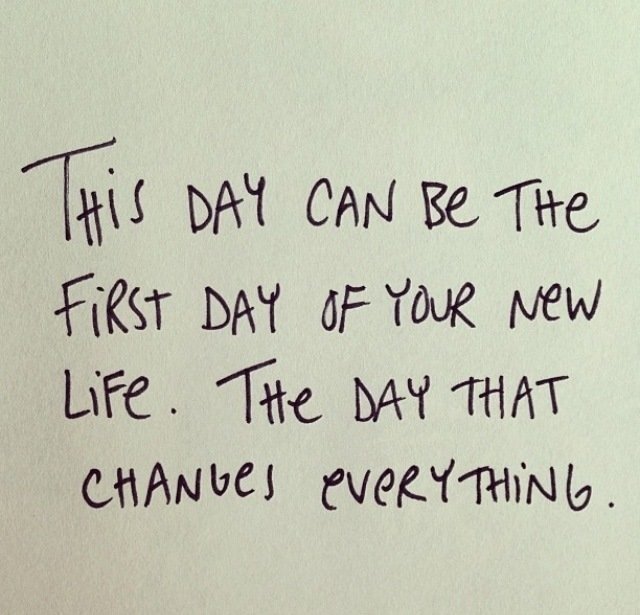 THiS DAY CAN Be THe
FiRST DAY OF YOUR New
LiFe. THe DAY THAT
CHANGeS eveRYTHiNG.